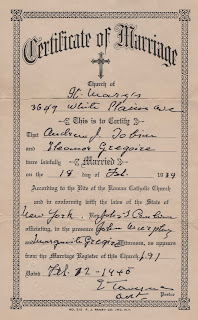 Certificate of Marriage
Church of
St. Mary's
3649 White Plains Ave
This is to Certify
That Andrew J. Tobin
and Eleanor Gregoire
were lawfully Married
on the 18 day of Feb. 19
According to the Rite of the Roman Catholic Church
and in conformity with the laws of the State of
New York. Rev.
officiating, in the presence of John Murphy
and Marguerite Gregoire Witnesses, as appears
from the Marriage Register of this Church.
Dated Feb. 12-1940
Pastor